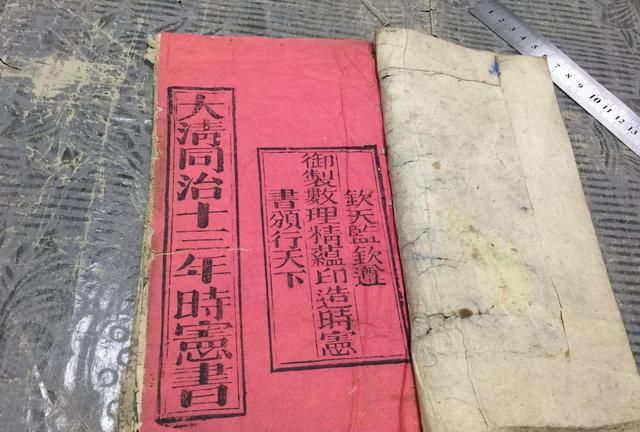 欽天監欽遵
御製數理精蘊印造時憲
書頒行天下
大清同治十三年時憲書
1 2 3 4 5 6 7 8 9 10 11 12 13